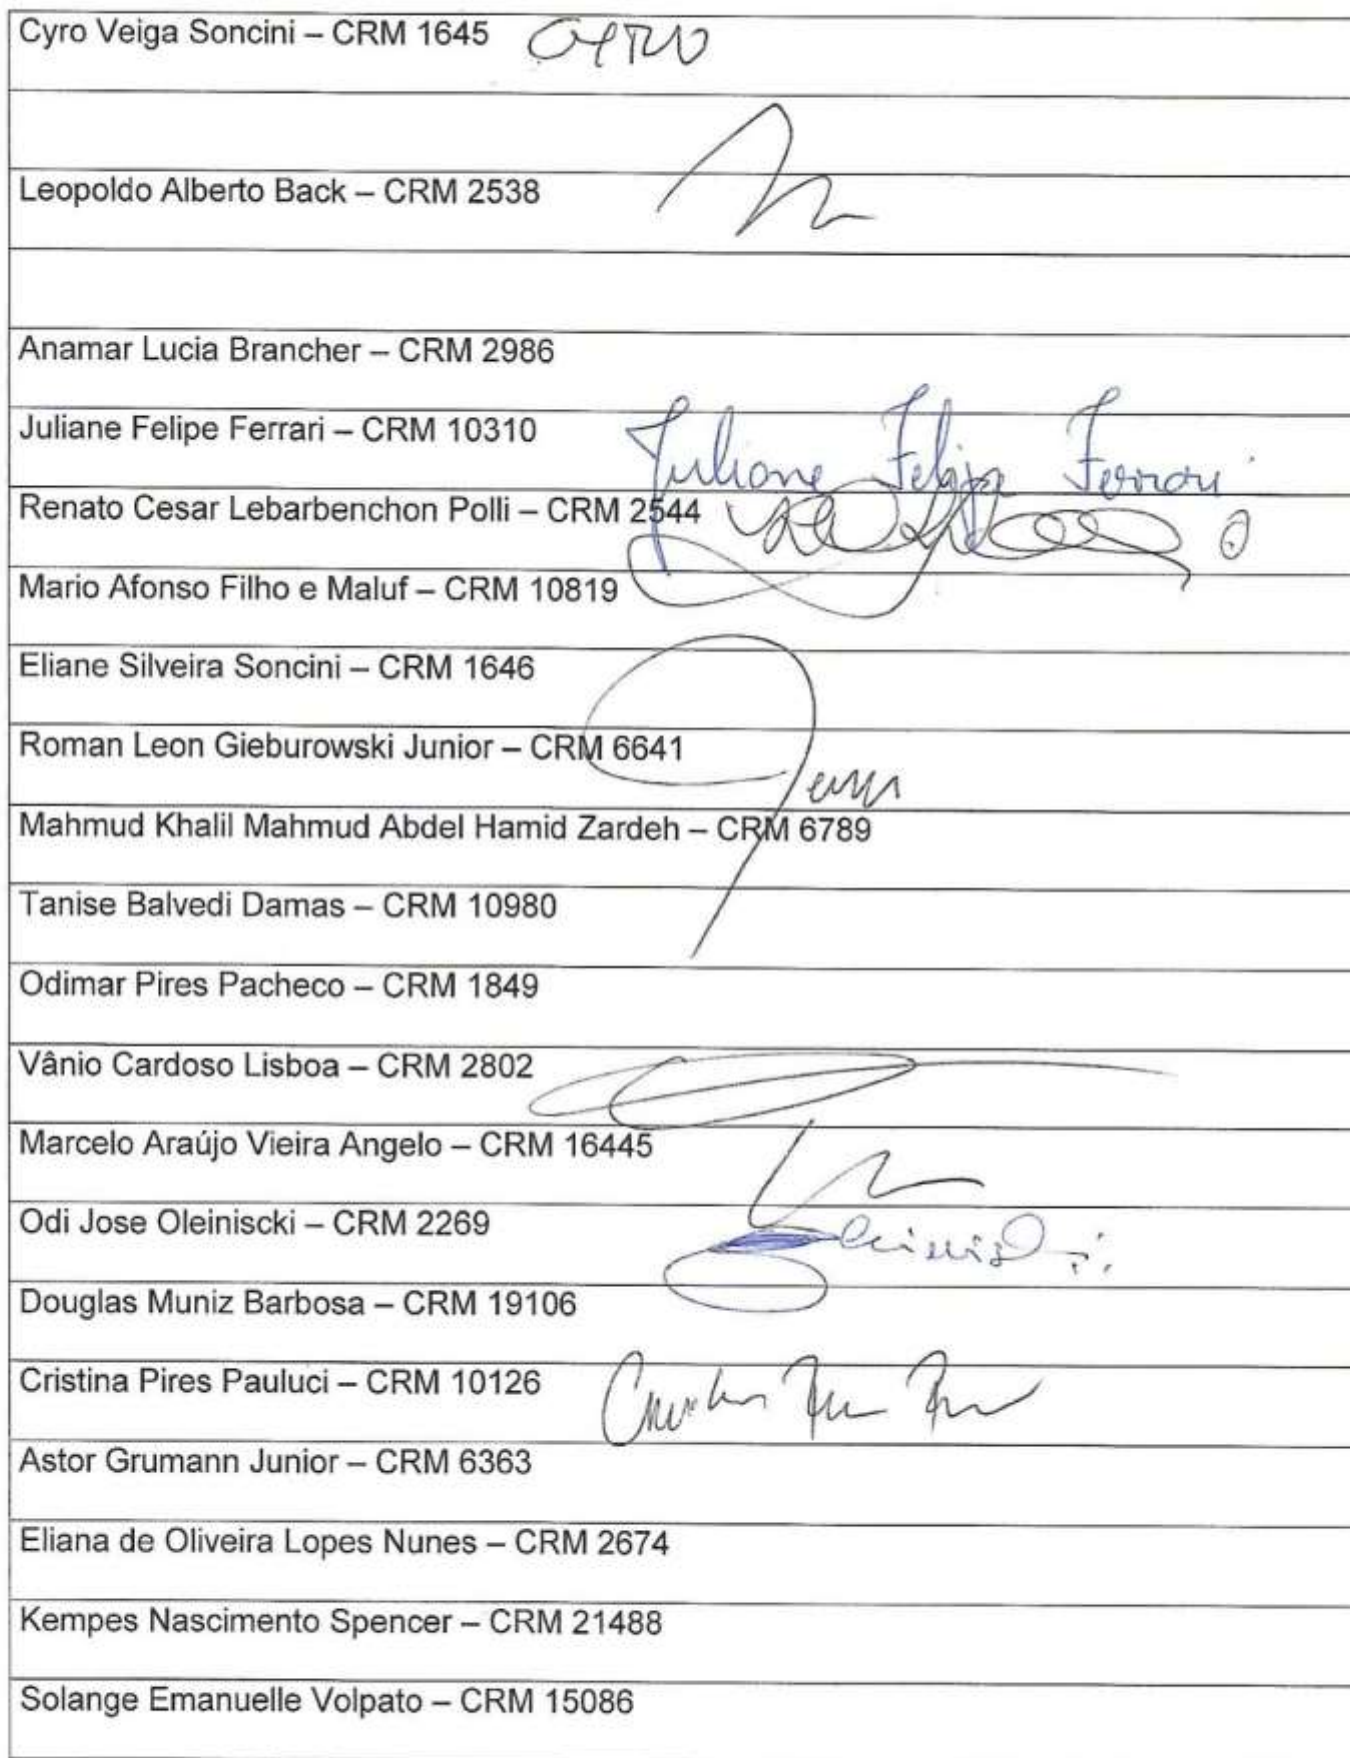 Cyro Veiga Soncini – CRM 1645
Leopoldo Alberto Back – CRM 2538
Anamar Lucia Brancher – CRM 2986
Juliane Felipe Ferrari – CRM 10310 Juliane Felipe Ferrari
Renato Cesar Lebarbenchon Polli – CRM 2544
Mario Afonso Filho e Maluf – CRM 10819
Eliane Silveira Soncini – CRM 1646
Roman Leon Gieburowski Junior – CRM 6641
Mahmud Khalil Mahmud Abdel Hamid Zardeh – CRM 6789
Tanise Balvedi Damas – CRM 10980
Odimar Pires Pacheco – CRM 1849
Vânio Cardoso Lisboa – CRM 2802
Marcelo Araújo Vieira Angelo – CRM 16445
Odi Jose Oleiniscki – CRM 2269
Douglas Muniz Barbosa – CRM 19106
Cristina Pires Pauluci – CRM 10126
Astor Grumann Junior – CRM 6363
Eliana de Oliveira Lopes Nunes – CRM 2674
Kempes Nascimento Spencer – CRM 21488
Solange Emanuelle Volpato – CRM 15086